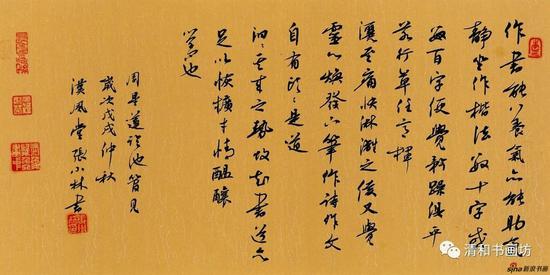 作書能養氣亦能助氣
靜坐作楷法數十字或
數百字便覺矜躁俱平
若行草任意揮
灑至痛快淋漓之候又覺
靈心煥發下筆作詩作文
自有頭頭是道
汩汩其來之勢故知書道亦
足以恢擴才情醞釀
學也
周星蓮臨池管見
歲次戊戌仲秋
漢風堂張小林書
清和书画坊
sina新浪书画